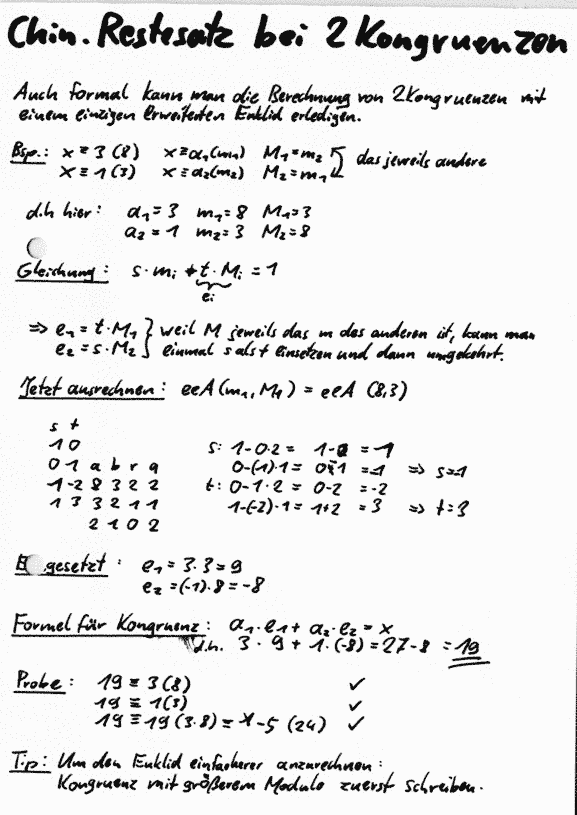 Chin. Restesatz bei 2 Kongruenzen
Auch formal kann man die Berechnung von 2 Kongruenzen mit
einem einzigen Erweiterten Euklid erledigen.
Bsp.: x ≡ 3 (8) x ≡ a₁(m₁) M₁ = m₂ das jeweils andere
x ≡ 1 (3) x ≡ a₂(m₂) M₂ = m₁
d.h hier: a₁ = 3 m₁ = 8 M₁ = 3
a₂ = 1 m₂ = 3 M₂ = 8
Gleichung: s · mᵢ + t · Mᵢ = 1
eᵢ
=> e₁ = t · M₁ } weil M jeweils das m des anderen ist, kann man
e₂ = s · M₂ } einmal s als t einsetzen und dann umgekehrt.
Jetzt ausrechnen: eeA (m₁, M₁) = eeA (8,3)
s t
1 0
0 1 a b r q
1 -2 8 3 2 2
1 3 3 2 1 1
2 1 0 2
s: 1-0·2 = 1-0 = 1
0-(1)·1 = 0-1 = -1 => s=-1
t: 0-1·2 = 0-2 = -2
1-(-2)·1 = 1+2 = 3 => t=3
gesetzt: e₁ = 3·3 = 9
e₂ = (-1)·8 = -8
Formel für Kongruenz: a₁·e₁ + a₂·e₂ = x
d.h. 3 · 9 + 1·(-8) = 27-8 = 19
Probe: 19 ≡ 3 (8) ✓
19 ≡ 1 (3) ✓
19 ≡ 19 (3·8) = -5 (24) ✓
Tip: Um den Euklid einfacherer anzurechnen:
Kongruenz mit größerem Modulo zuerst schreiben.